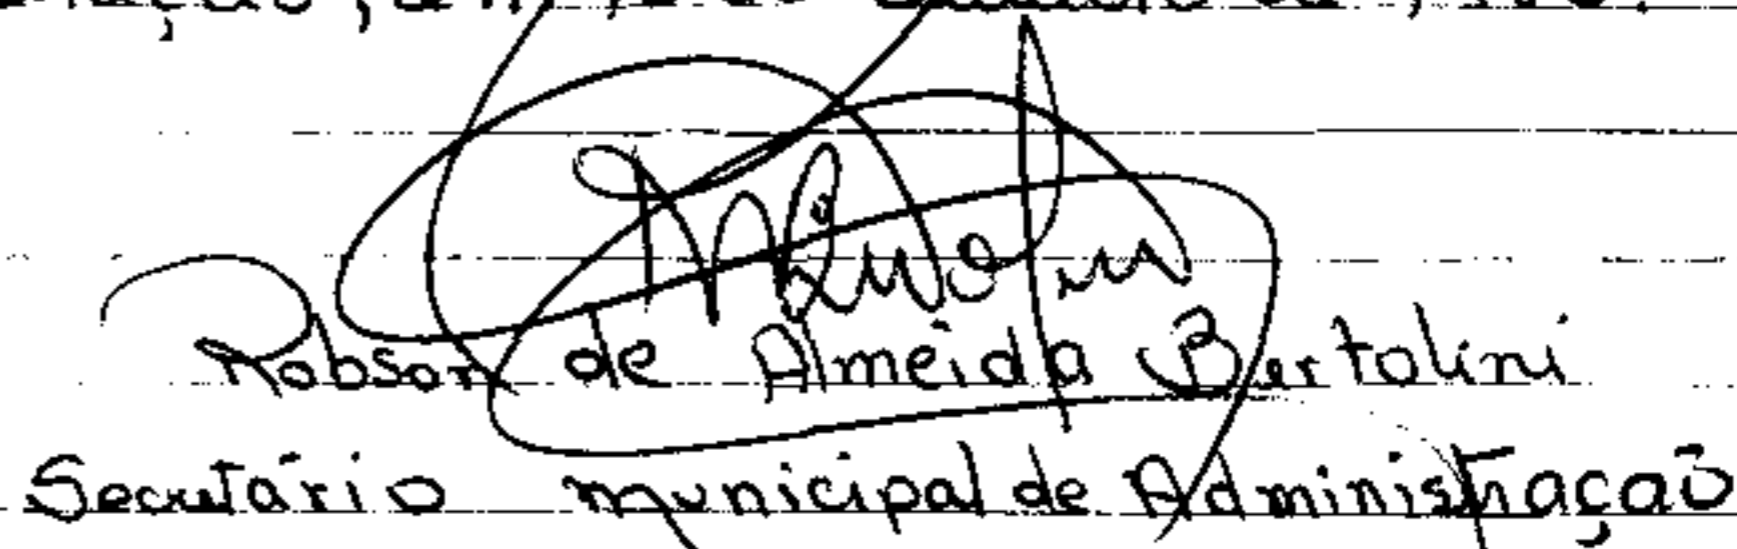 Robson de Almeida Bertolini
Secretário municipal de Administração